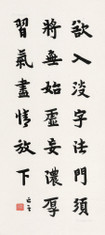 欲入沒字法門須
將無始虛妄濃厚
習氣盡情放下